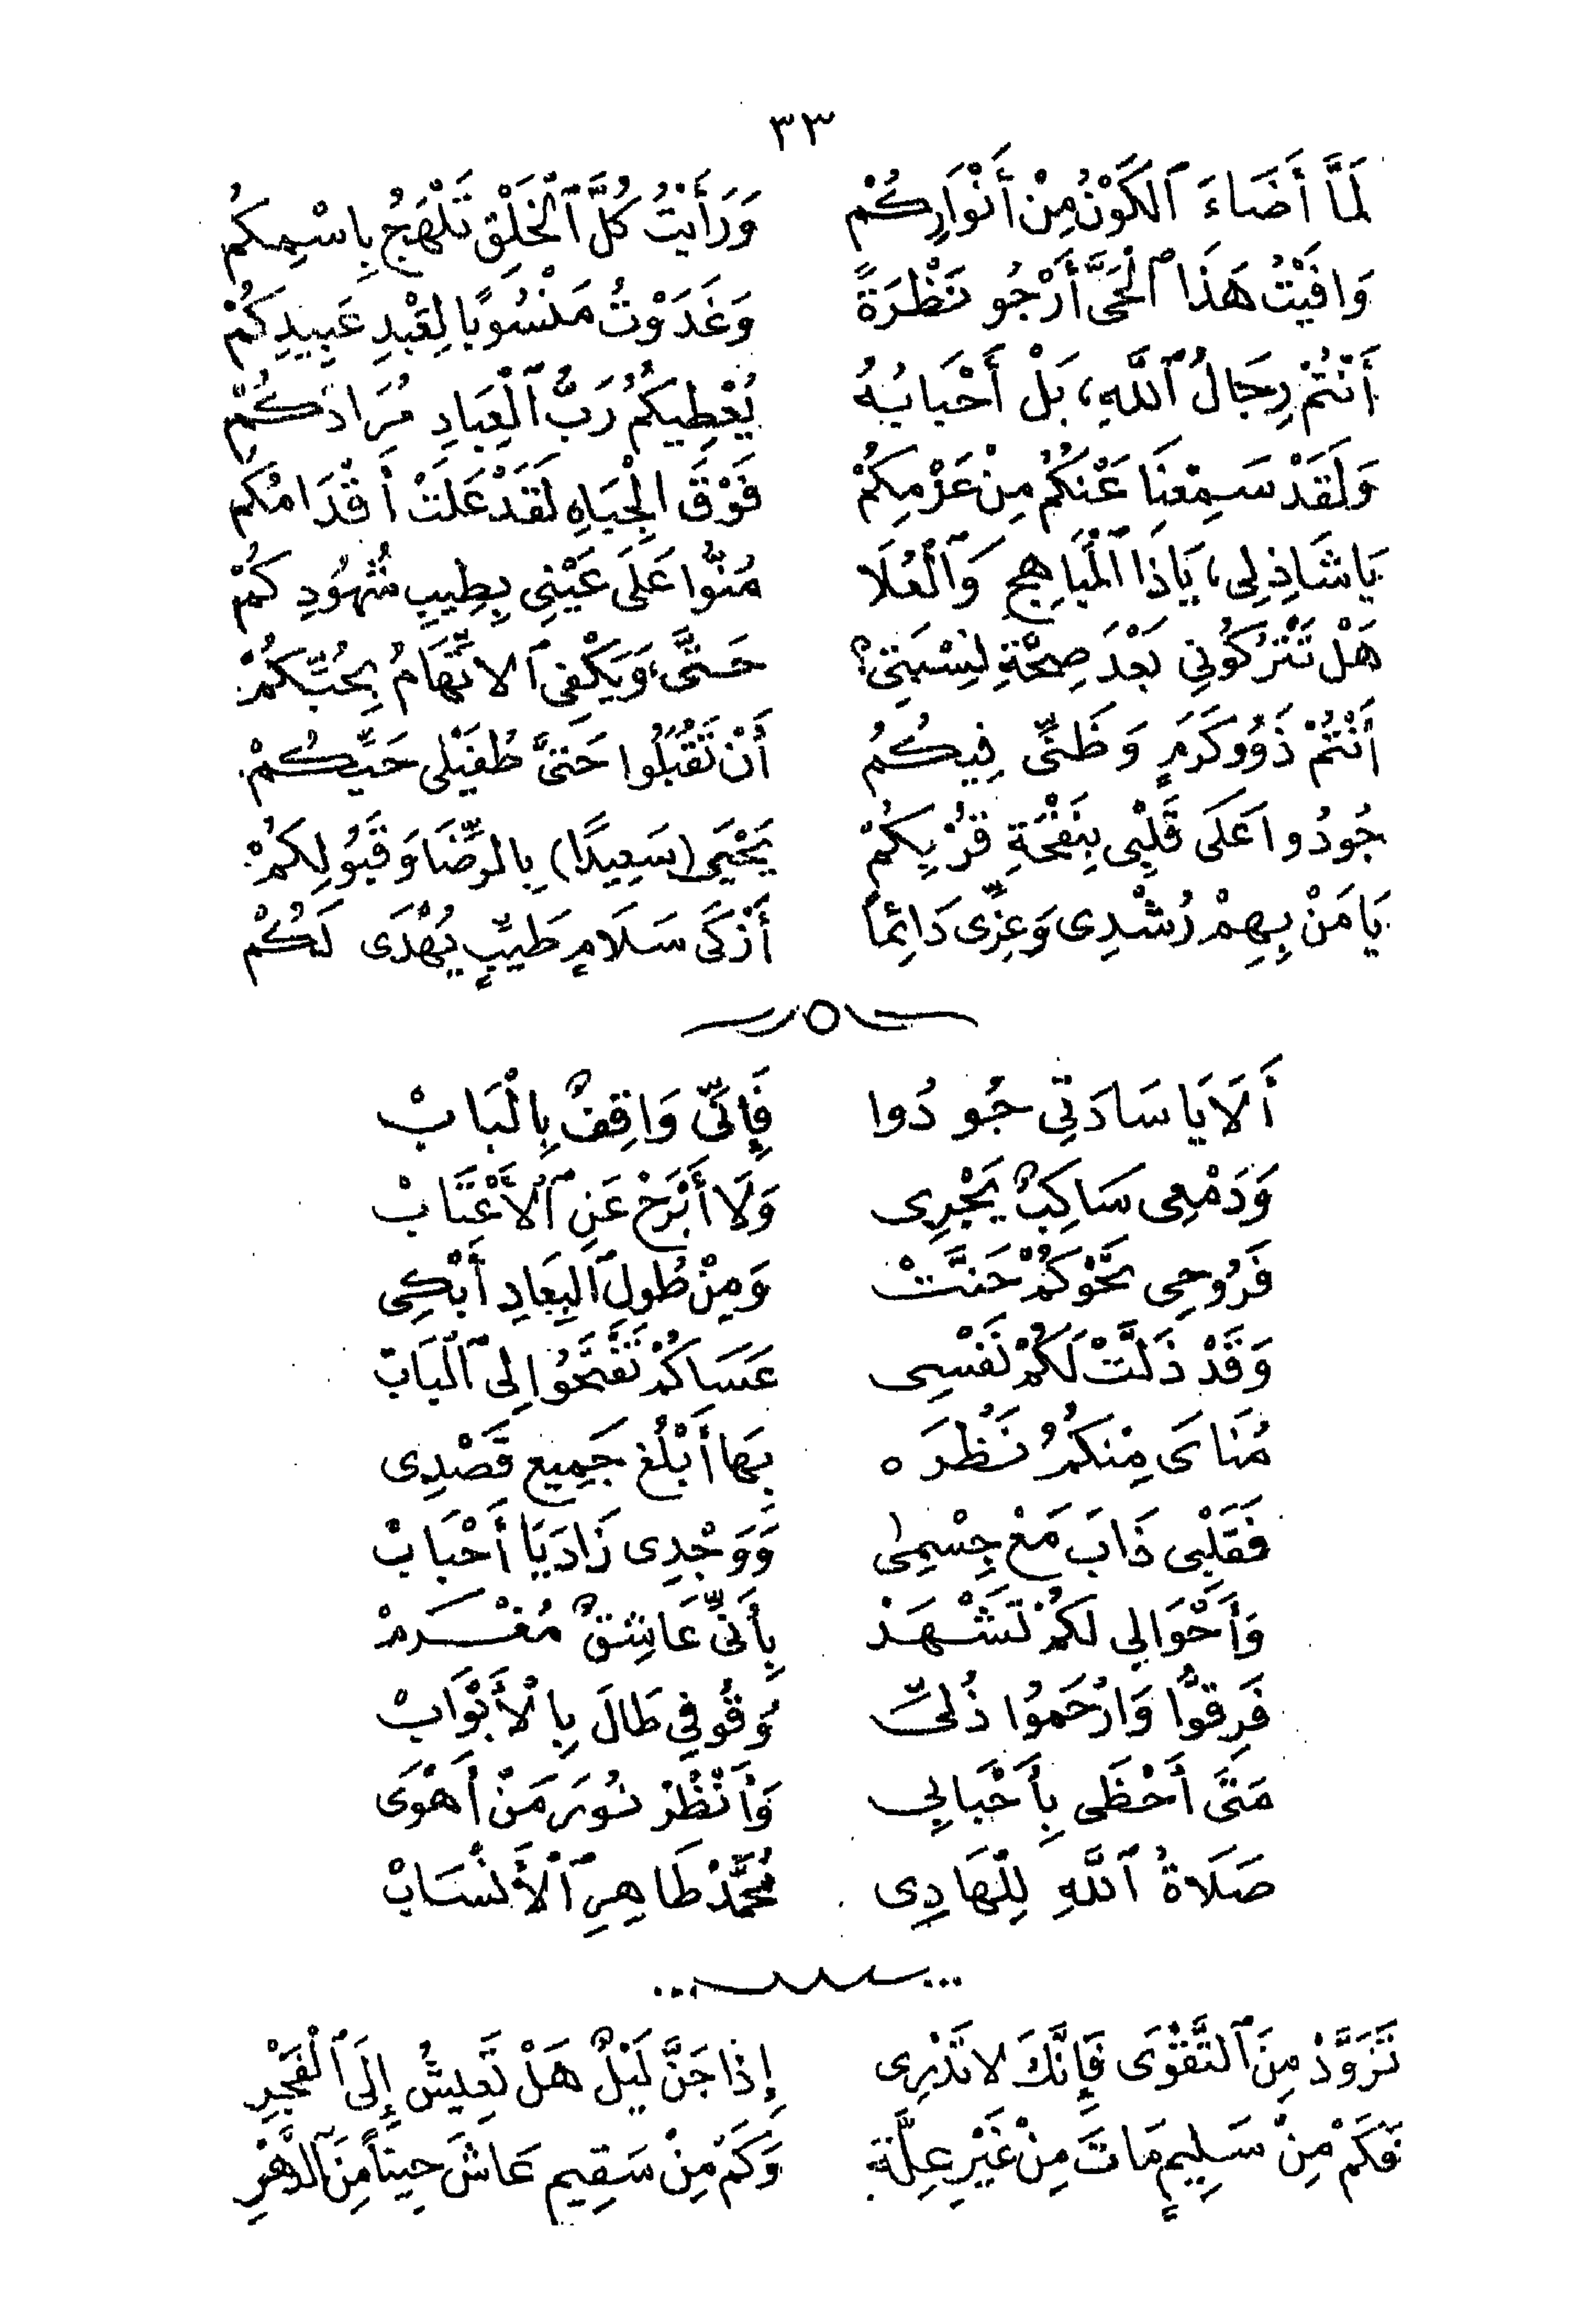 ٣٣
لَمَّا أَضَاءَ ٱلْكَوْنُ مِنْ أَنْوَارِكُمْ وَرَأَيْتُ كُلَّ ٱلْخَلْقِ تَلْهَجُ بِاسْمِكُمْ
وَافَيْتُ هَذَا ٱلْحَىَّ أَرْجُو نَظْرَةً وَغَدَوْتُ مَنْسُوبًا لِعَبْدِ عَبِيدِكُمْ
أَنْتُمْ رِجَالُ ٱللَّهِ، بَلْ أَحْبَابُهُ يُعْطِيكُمُ رَبُّ ٱلْعِبَادِ مُرَادَكُمْ
وَلَقَدْ سَمِعْنَا عَنْكُمُ مِنْ عَزْمِكُمْ فَوْقَ الْجِبَاهِ لَقَدْ عَلَتْ أَقْدَامُكُمْ
يَا شَاذِلِى، يَاذَا ٱلْمَبَاهِجِ وَٱلْعُلَا مُنُّوا عَلَى عَيْنِى بِطِيبِ شُهُودِكُمْ
هَلْ تَتْرُكُونِي بَعْدَ صِحَّةِ نِسْبَتِى؟ حَتَّى، وَيَكْفِى ٱلاتِّهَامُ بِحُبِّكُمْ
أَنْتُمْ ذَوُو كَرَمٍ وَظَنِّى فِيكُمُ أَنْ تَقْبَلُوا حَتَّى طُفَيْلِى حَيِّكُمْ
جُودُوا عَلَى قَلْبِى بِنَفْحَةِ قُرْبِكُمْ يَحْيَى (سَعِيدًا) بِالرِّضَا وَقَبُولِكُمْ
يَا مَنْ بِهِمْ رُشْدِى وَعِزِّى دَائِمًا أَزْكَى سَلَامٍ طَيِّبٍ يُهْدَى لَكُمْ
أَلَا يَا سَادَتِي جُودُوا فَإِنِّى وَاقِفٌ بِالْبَابْ
وَدَمْعِى سَاكِبٌ يَجْرِى وَلَا أَبْرَحْ عَنِ ٱلأَعْتَابْ
فَرُوحِى نَحْوَكُمْ حَنَّتْ وَمِنْ طُولِ ٱلبِعَادِ أَبْكِى
وَقَدْ ذَلَّتْ لَكُمْ نَفْسِى عَسَاكُمْ تَفْتَحُوا لِى ٱلْبَابْ
مُنَاىَ مِنْكُمُ نَظْرَه بِهَا أَبْلُغْ جَمِيعَ قَصْدِى
فَقَلْبِى ذَابَ مَعْ جِسْمِى وَوَجْدِى زَادَ يَا أَحْبَابْ
وَأَحْوَالِي لَكُمْ تَشْهَدْ بِأَنِّى عَاشِقٌ مُغْرَمْ
فَرِقُّوا وَارْحَمُوا ذُلِّى وُقُوفِي طَالَ بِالْأَبْوَابْ
مَتَى أَحْظَى بِأَحْبَابِي وَأَنْظُرْ نُورَ مَنْ أَهْوَى
صَلَاةُ ٱللَّهِ لِلْهَادِى مُحَمَّدْ طَاهِرِ ٱلْأَنْسَابْ
تَزَوَّدْ مِنَ ٱلتَّقْوَى فَإِنَّكَ لَا تَدْرِى إِذَا جَنَّ لَيْلٌ هَلْ تَعِيشُ إِلَى ٱلْفَجْرِ
فَكَمْ مِنْ سَلِيمٍ مَاتَ مِنْ غَيْرِ عِلَّةٍ وَكَمْ مِنْ سَقِيمٍ عَاشَ حِينًا مِنَ ٱلدَّهْرِ